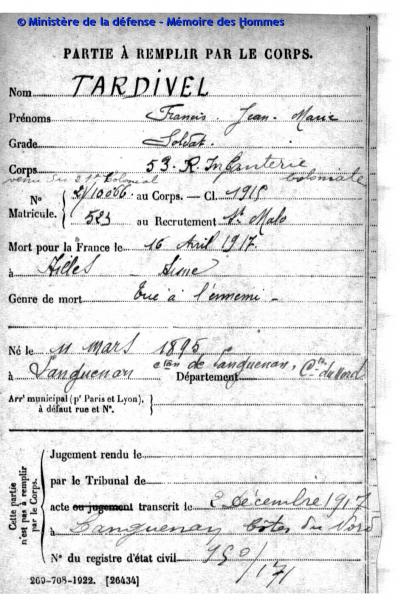 © Ministère de la défense - Mémoire des Hommes
PARTIE À REMPLIR PAR LE CORPS.
Nom TARDIVEL
Prénoms Francis Jean Marie
Grade Soldat
Corps 53 R. Infanterie
venu du 21e Colonial Coloniale
N° 21/10066 au Corps. — Cl. 1915
Matricule. 523 au Recrutement St Malo
Mort pour la France le 16 Avril 1917
à Ailles Aisne
Genre de mort Tué à l'ennemi
Né le 11 mars 1895
à Languenan con de Languenan, Département Ctes du Nord
Arrt municipal (pr Paris et Lyon),
à défaut rue et N°.
Cette partie n'est pas à remplir par le Corps.
Jugement rendu le
par le Tribunal de
acte ou jugement transcrit le 2 décembre 1917
à Languenan Côtes du Nord
N° du registre d'état civil
269-708-1922. [26434]